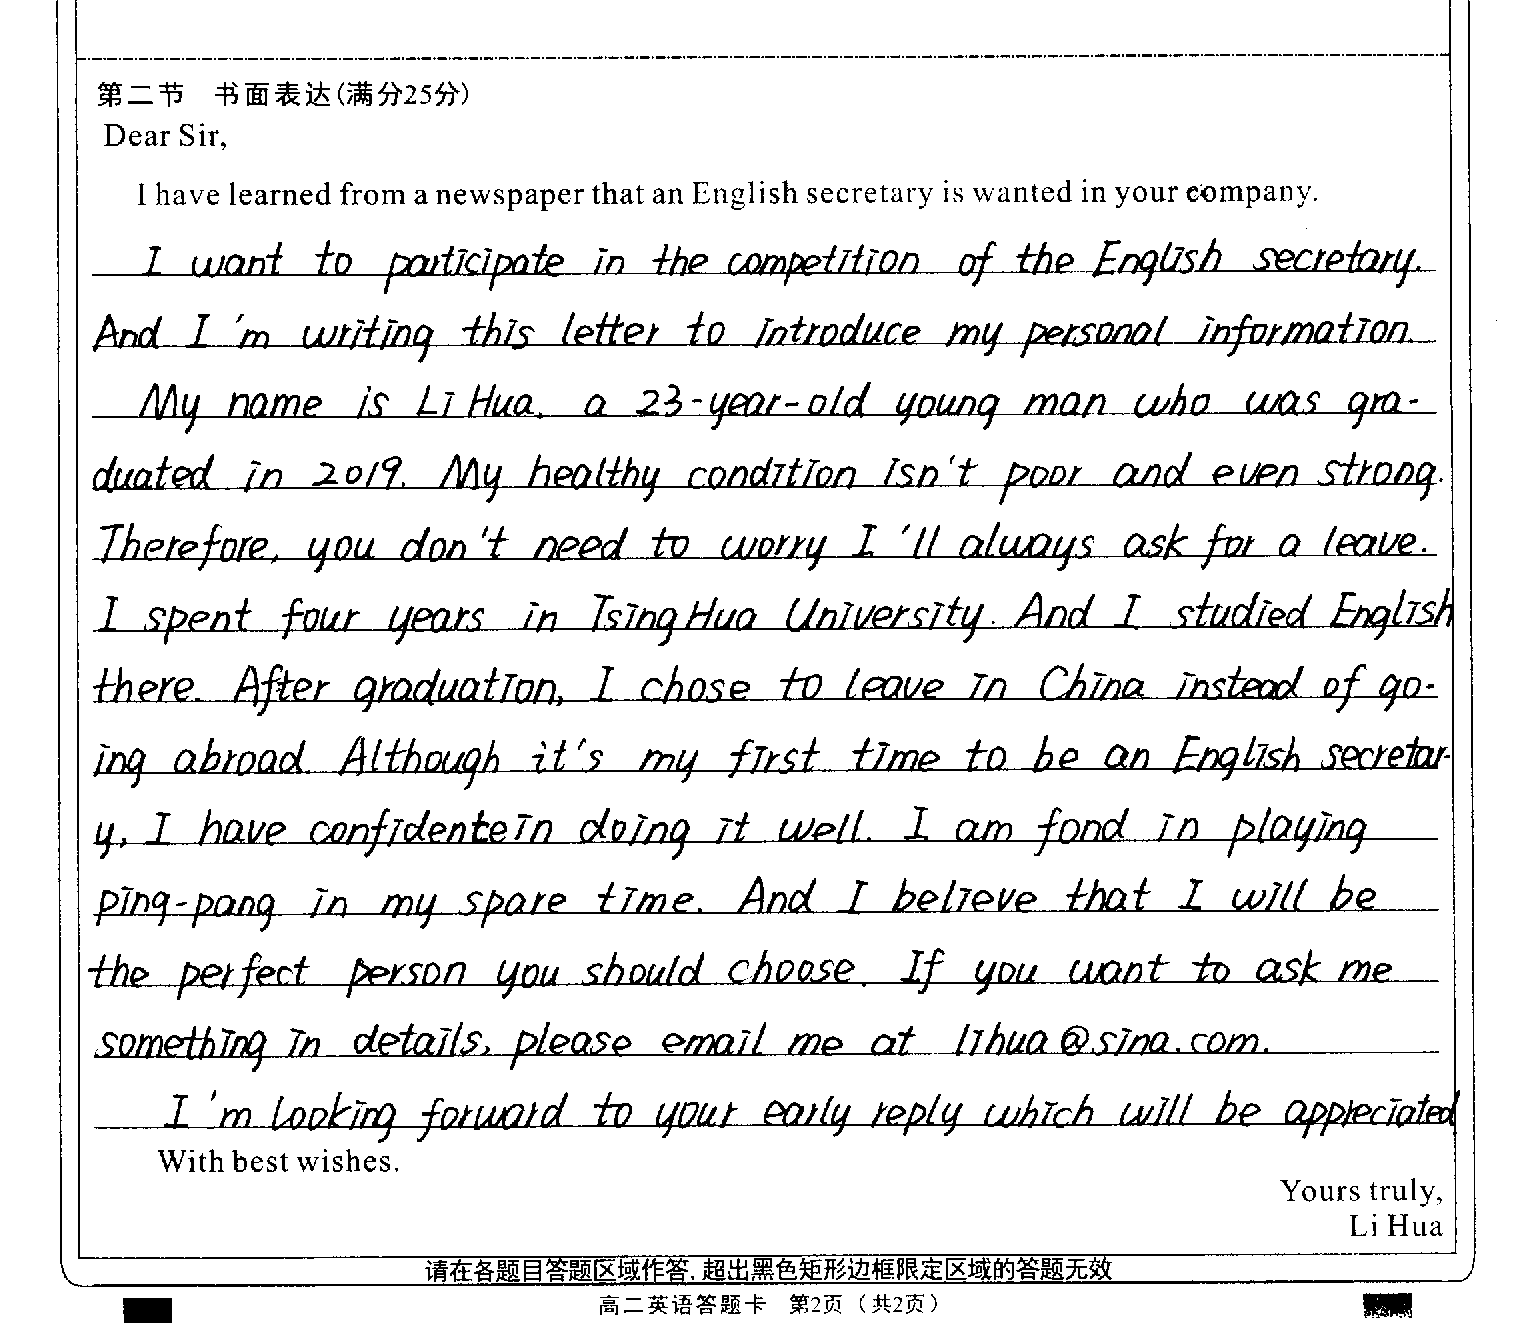 第二节 书面表达(满分25分)
Dear Sir,
I have learned from a newspaper that an English secretary is wanted in your company.
I want to participate in the competition of the English secretary.
And I'm writing this letter to introduce my personal information.
My name is Li Hua, a 23-year-old young man who was gra-
duated in 2019. My healthy condition isn't poor and even strong.
Therefore, you don't need to worry I'll always ask for a leave.
I spent four years in TsingHua University. And I studied English
there. After graduation, I chose to leave in China instead of go-
ing abroad. Although it's my first time to be an English secretar-
y, I have confidente in doing it well. I am fond in playing
ping-pang in my spare time. And I believe that I will be
the perfect person you should choose. If you want to ask me
something in details, please email me at lihua@sina.com.
I'm looking forward to your early reply which will be appreciated
With best wishes.
Yours truly,
Li Hua
请在各题目答题区域作答,超出黑色矩形边框限定区域的答题无效
高二英语答题卡 第2页（共2页）